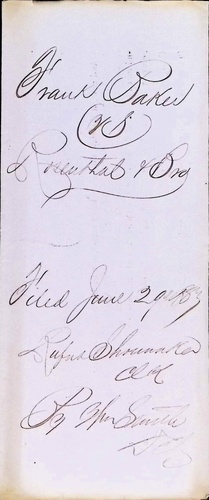 Frank Baker
vs
Rosenthal & Bro
Filed June 29
Rufus Shoemaker
Clk
By Wm Smith
Dpy